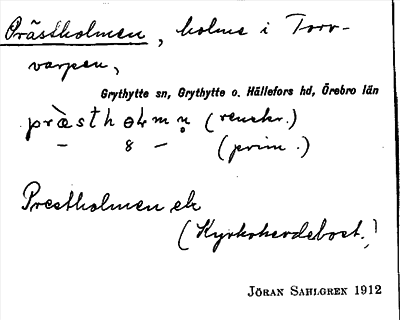 Prästholmen, holme i Torr-
varpen,
Grythytte sn, Grythytte o. Hällefors hd, Örebro län
(renskr.)
– 8 – (prim.)
Prestholmen ek
(Kyrkoherdebost.)
JÖRAN SAHLGREN 1912